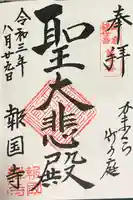 奉拝
かまくら
竹の庭
聖大悲殿
報国寺
令和三年
八月廿九日